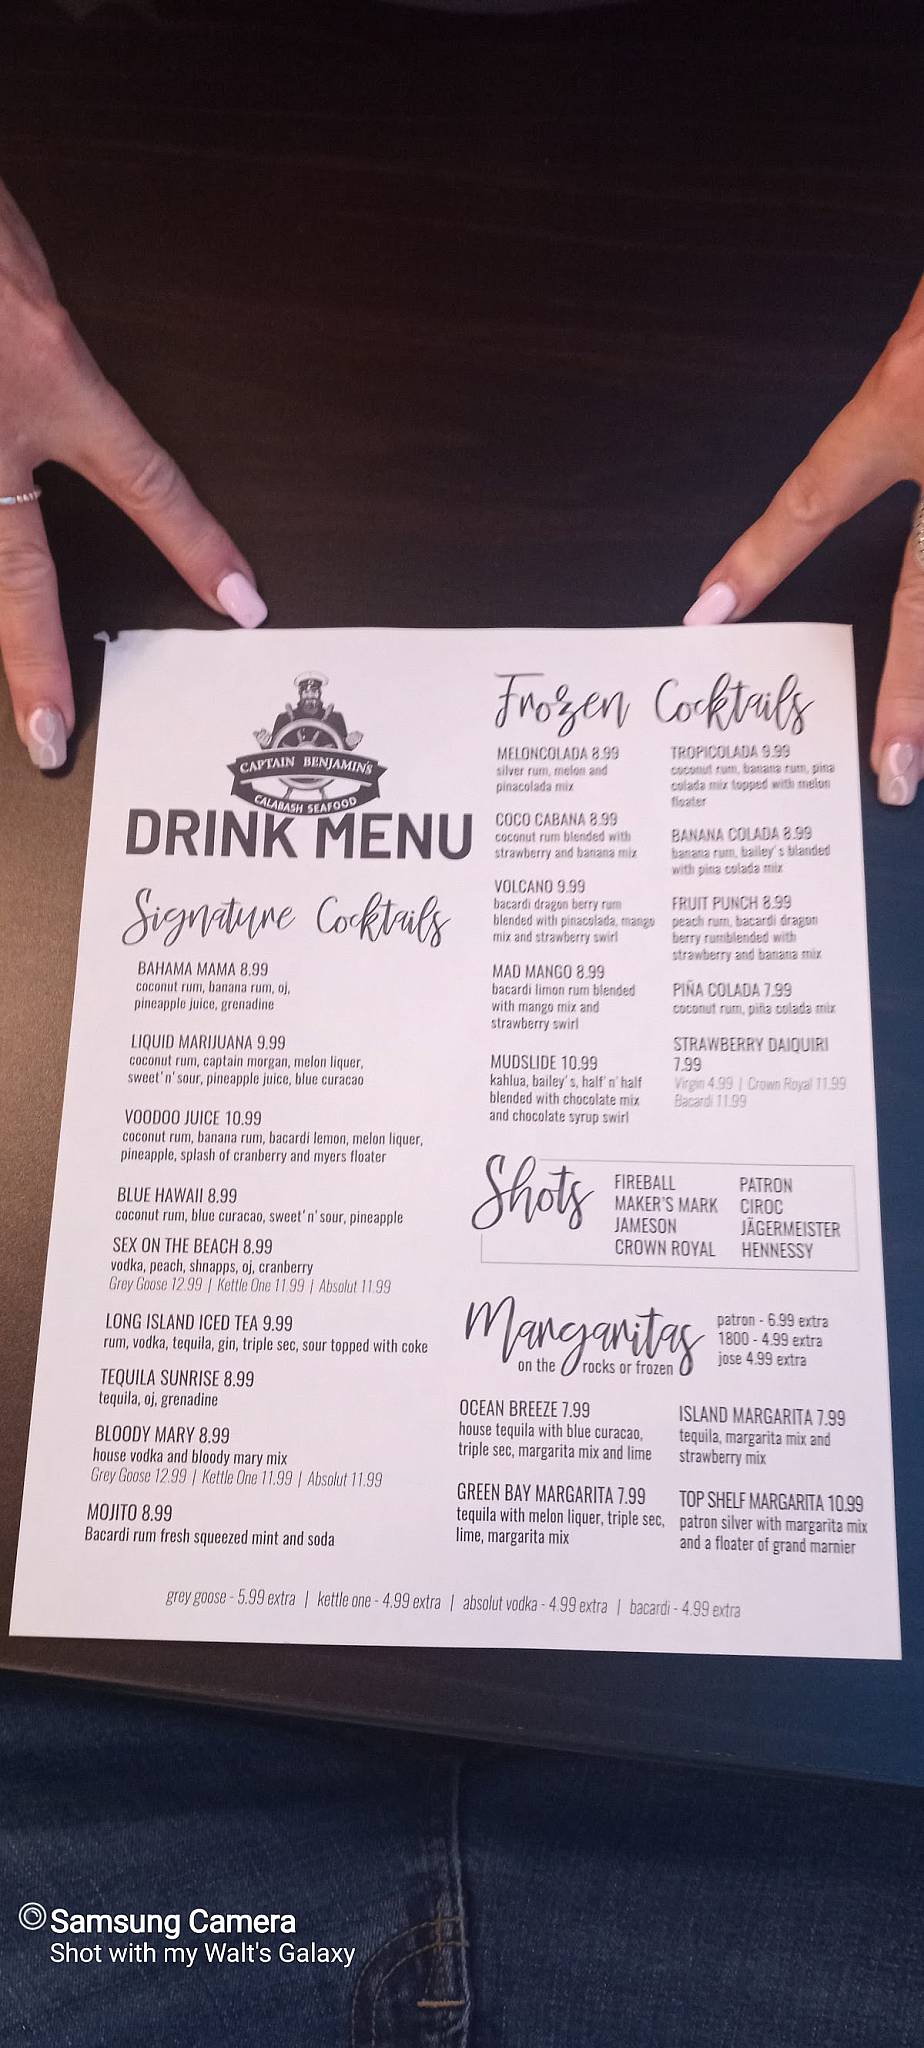 CAPTAIN BENJAMIN'S
CALABASH SEAFOOD
DRINK MENU
Signature Cocktails
BAHAMA MAMA 8.99
coconut rum, banana rum, oj,
pineapple juice, grenadine
LIQUID MARIJUANA 9.99
coconut rum, captain morgan, melon liquer,
sweet'n'sour, pineapple juice, blue curacao
VOODOO JUICE 10.99
coconut rum, banana rum, bacardi lemon, melon liquer,
pineapple, splash of cranberry and myers floater
BLUE HAWAII 8.99
coconut rum, blue curacao, sweet'n'sour, pineapple
SEX ON THE BEACH 8.99
vodka, peach, shnapps, oj, cranberry
Grey Goose 12.99 | Kettle One 11.99 | Absolut 11.99
LONG ISLAND ICED TEA 9.99
rum, vodka, tequila, gin, triple sec, sour topped with coke
TEQUILA SUNRISE 8.99
tequila, oj, grenadine
BLOODY MARY 8.99
house vodka and bloody mary mix
Grey Goose 12.99 | Kettle One 11.99 | Absolut 11.99
MOJITO 8.99
Bacardi rum fresh squeezed mint and soda
Frozen Cocktails
MELONCOLADA 8.99
silver rum, melon and
pinacolada mix
COCO CABANA 8.99
coconut rum blended with
strawberry and banana mix
VOLCANO 9.99
bacardi dragon berry rum
blended with pinacolada, mango
mix and strawberry swirl
MAD MANGO 8.99
bacardi limon rum blended
with mango mix and
strawberry swirl
MUDSLIDE 10.99
kahlua, bailey's, half'n'half
blended with chocolate mix
and chocolate syrup swirl
TROPICOLADA 9.99
coconut rum, banana rum, pina
colada mix topped with melon
floater
BANANA COLADA 8.99
banana rum, bailey's blanded
with pina colada mix
FRUIT PUNCH 8.99
peach rum, bacardi dragon
berry rumblended with
strawberry and banana mix
PIÑA COLADA 7.99
coconut rum, piña colada mix
STRAWBERRY DAIQUIRI
7.99
Virgin 4.99 | Crown Royal 11.99
Bacardi 11.99
Shots
FIREBALL
MAKER'S MARK
JAMESON
CROWN ROYAL
PATRON
CIROC
JÄGERMEISTER
HENNESSY
Margaritas
on the rocks or frozen
patron - 6.99 extra
1800 - 4.99 extra
jose 4.99 extra
OCEAN BREEZE 7.99
house tequila with blue curacao,
triple sec, margarita mix and lime
GREEN BAY MARGARITA 7.99
tequila with melon liquer, triple sec,
lime, margarita mix
ISLAND MARGARITA 7.99
tequila, margarita mix and
strawberry mix
TOP SHELF MARGARITA 10.99
patron silver with margarita mix
and a floater of grand marnier
grey goose - 5.99 extra | kettle one - 4.99 extra | absolut vodka - 4.99 extra | bacardi - 4.99 extra
Samsung Camera
Shot with my Walt's Galaxy